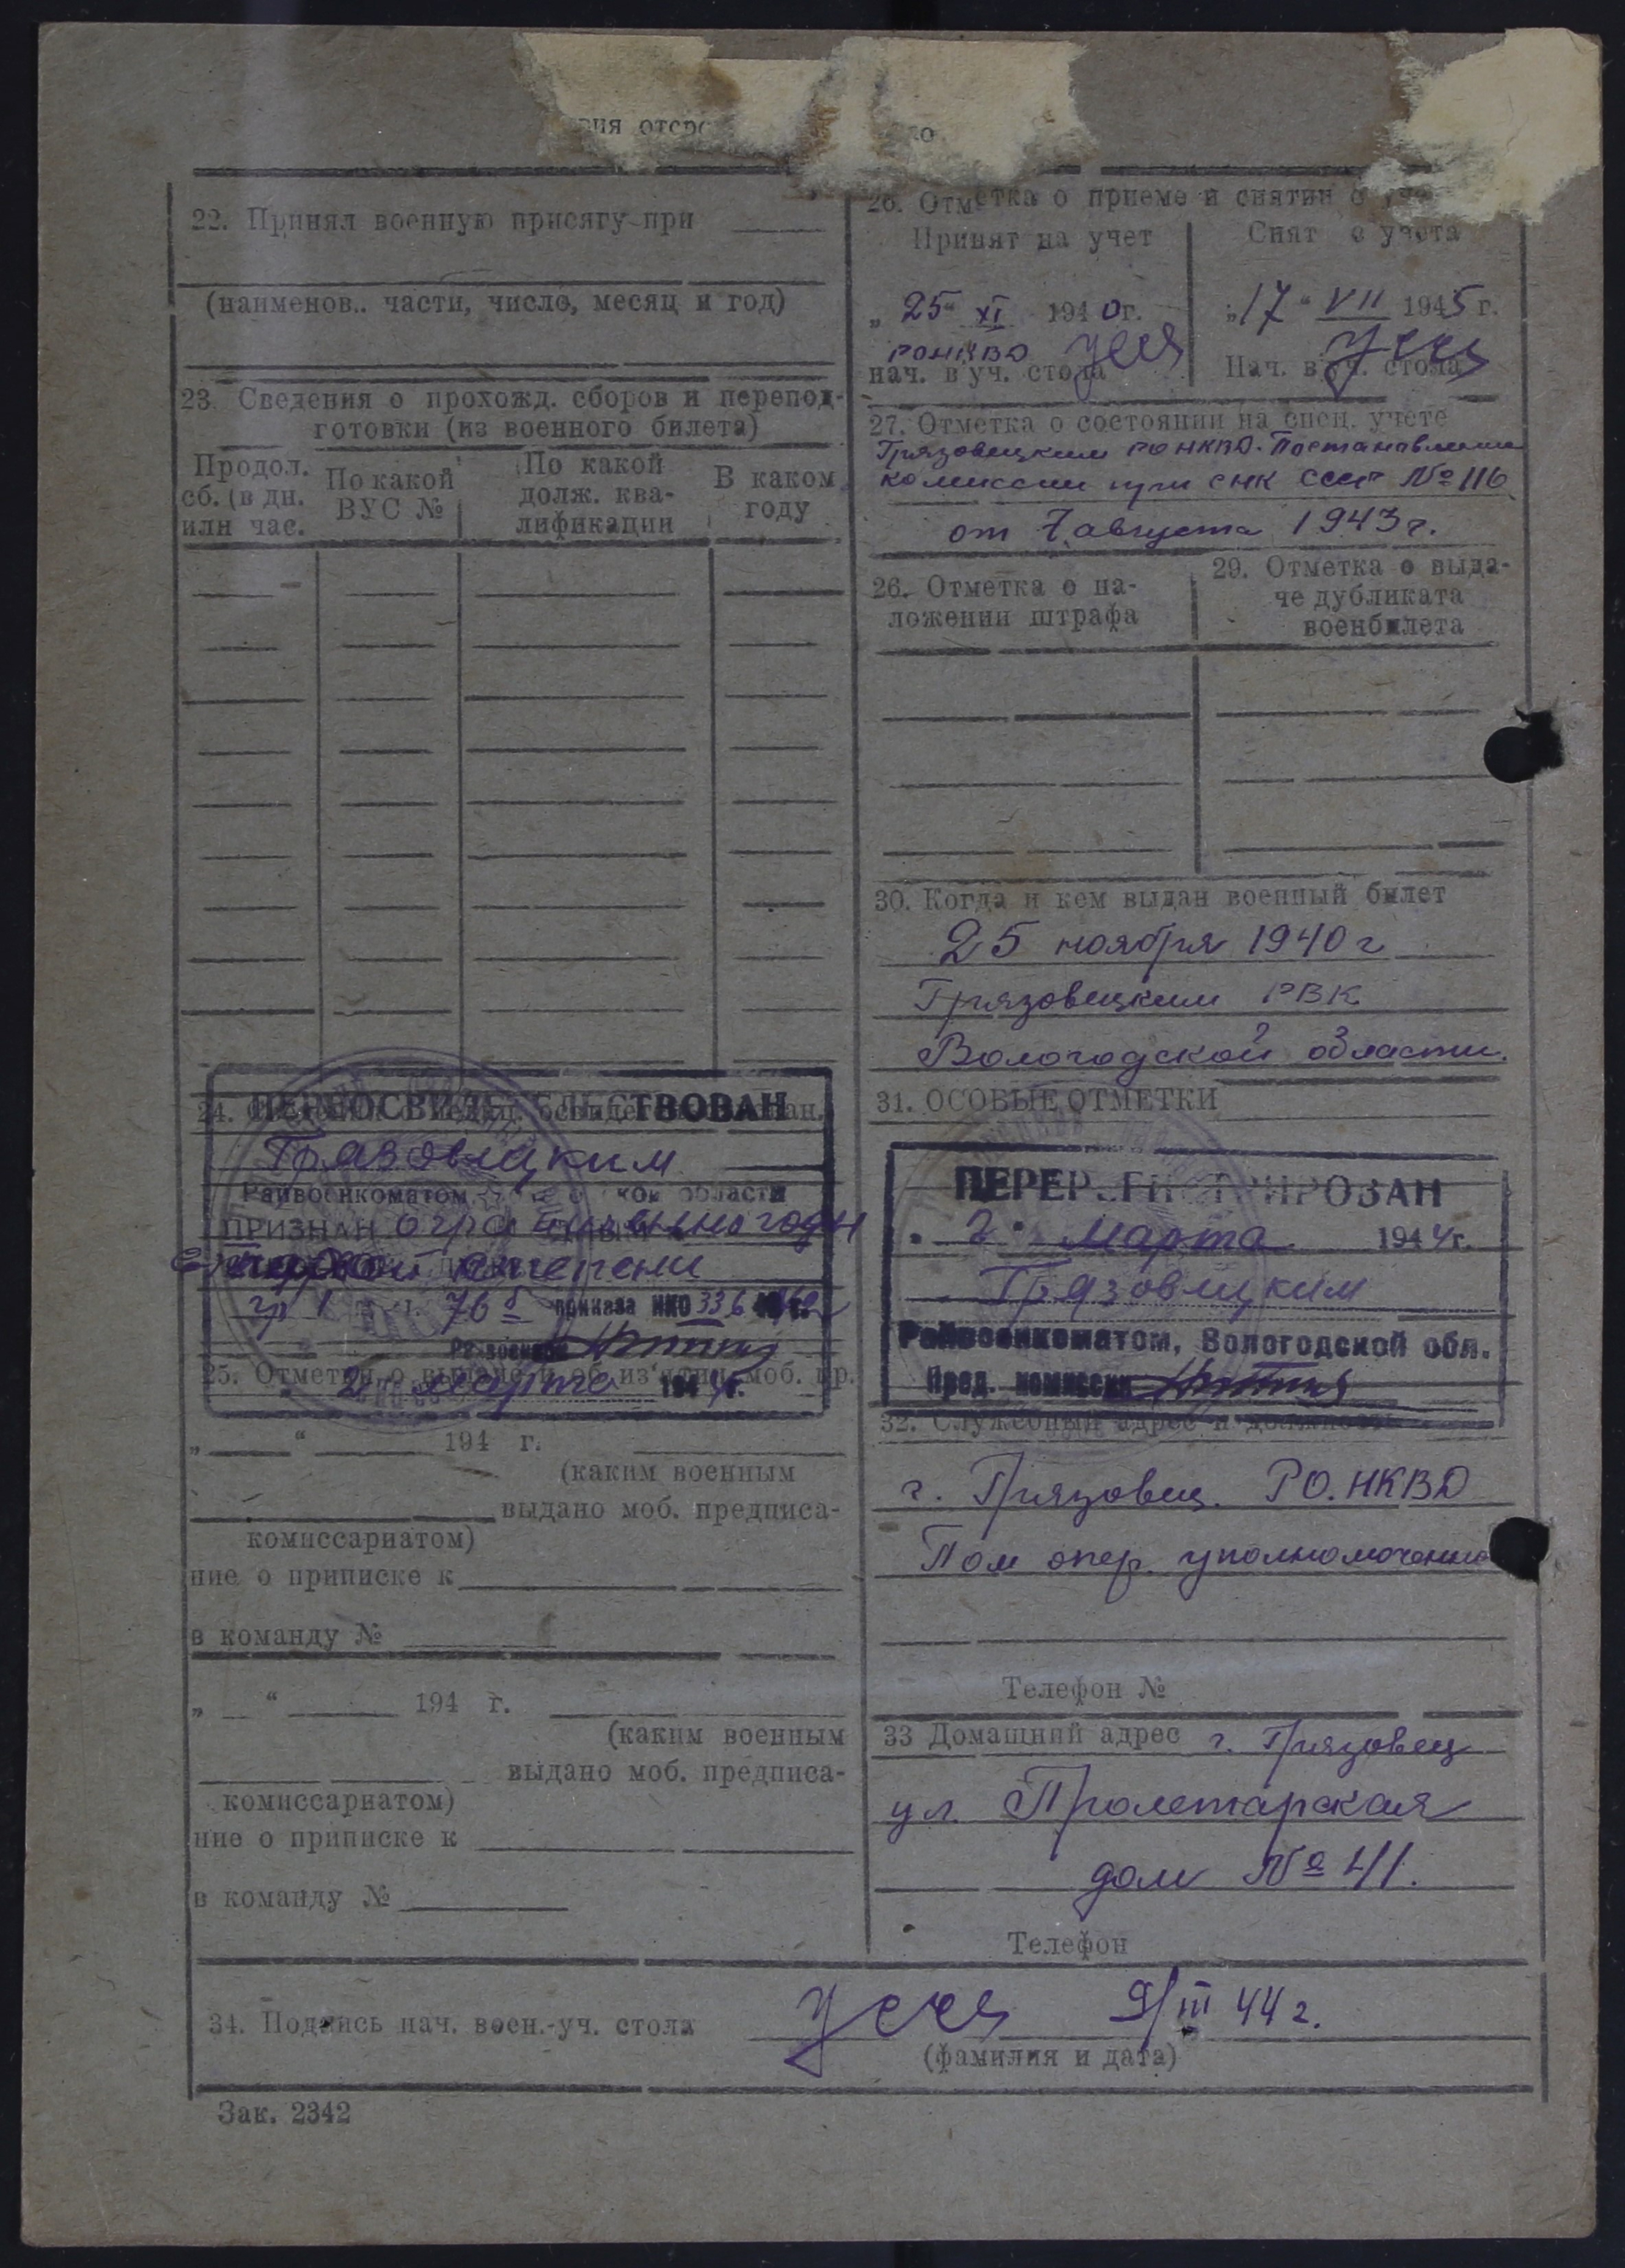 отср
22. Принял военную присягу при
(наименов.. части, число, месяц и год)
23. Сведения о прохожд. сборов и перепод-
готовки (из военного билета)
Продол.
сб. (в дн.
или час.
По какой
ВУС №
По какой
долж. ква-
лификации
В каком
году
24.
ПЕРЕОСВИДЕТЕЛЬСТВОВАН
Грязовецким
Райвоенкоматом области
ПРИЗНАН
степени
гр 1 76 б приказа НКО 336
Райвоенком
25. Отметки о моб. пр.
2 марта 194 г.
„ “ 194 г.
(каким военным
выдано моб. предписа-
комиссариатом)
ние о приписке к
в команду №
„ “ 194 г.
(каким военным
выдано моб. предписа-
комиссариатом)
ние о приписке к
в команду №
26. Отметка о приеме и снятии с
Принят на учет
„25“ XI 1940г.
РОНКВД
нач. в уч. стола
Снят с учета
„17“ VII 1945 г.
Нач. в уч. стола
27. Отметка о состоянии на спец. учете
Грязовецким РО НКВД. Постановление
комиссии при СНК СССР № 116
от 7 августа 1943 г.
26. Отметка о на-
ложении штрафа
29. Отметка о выда-
че дубликата
военбилета
30. Когда и кем выдан военный билет
25 ноября 1940 г
Грязовецким РВК
Вологодской области.
31. ОСОБЫЕ ОТМЕТКИ
ПЕРЕРЕГИСТРИРОВАН
„2“ Марта 1944г.
Грязовецким
Райвоенкоматом, Вологодской обл.
Пред. комиссии
32. Служебный адрес и должность
г. Грязовец. РО. НКВД
Пом опер. уполномочен
Телефон №
33 Домашний адрес г. Грязовец
ул. Пролетарская
дом № 41.
Телефон
34. Подпись нач. воен.-уч. стола 9/III 44 г.
(фамилия и дата)
Зак. 2342